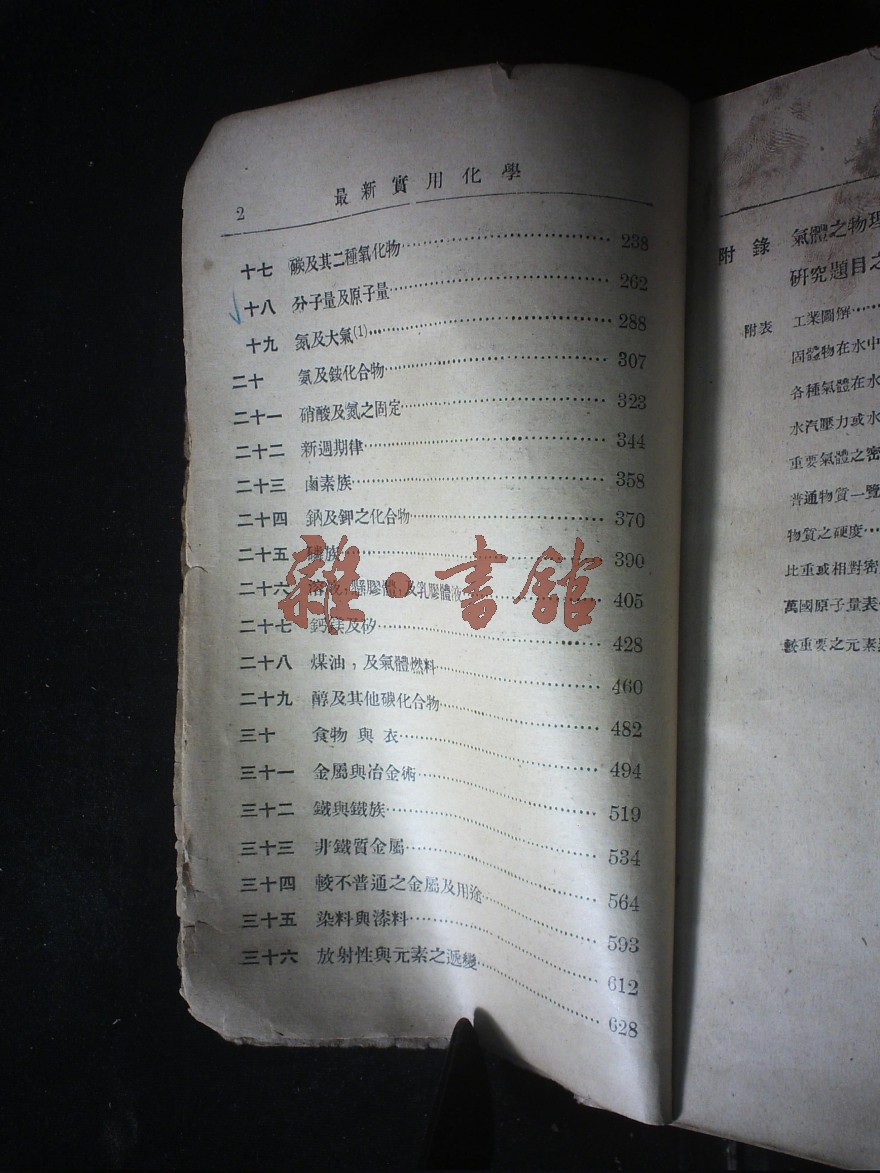 2 最新實用化學
十七 碳及其二種氧化物 238
十八 分子量及原子量 262
十九 氮及大氣(1) 288
二十 氨及銨化合物 307
二十一 硝酸及氮之固定 323
二十二 新週期律 344
二十三 鹵素族 358
二十四 鈉及鉀之化合物 370
二十五 磷族 390
二十六 溶液,懸膠體,及乳膠體液 405
二十七 鈣鎂及矽 428
二十八 煤油,及氣體燃料 460
二十九 醇及其他碳化合物 482
三十 食物與衣 494
三十一 金屬與冶金術 519
三十二 鐵與鐵族 534
三十三 非鐵質金屬 564
三十四 較不普通之金屬及用途 593
三十五 染料與漆料 612
三十六 放射性與元素之遞變 628
雜·書館
附錄 氣體之物理
研究題目之
附表 工業圖解
固體物在水中
各種氣體在水
水汽壓力或水
重要氣體之密
普通物質一覽
物質之硬度
比重或相對密
萬國原子量表
較重要之元素